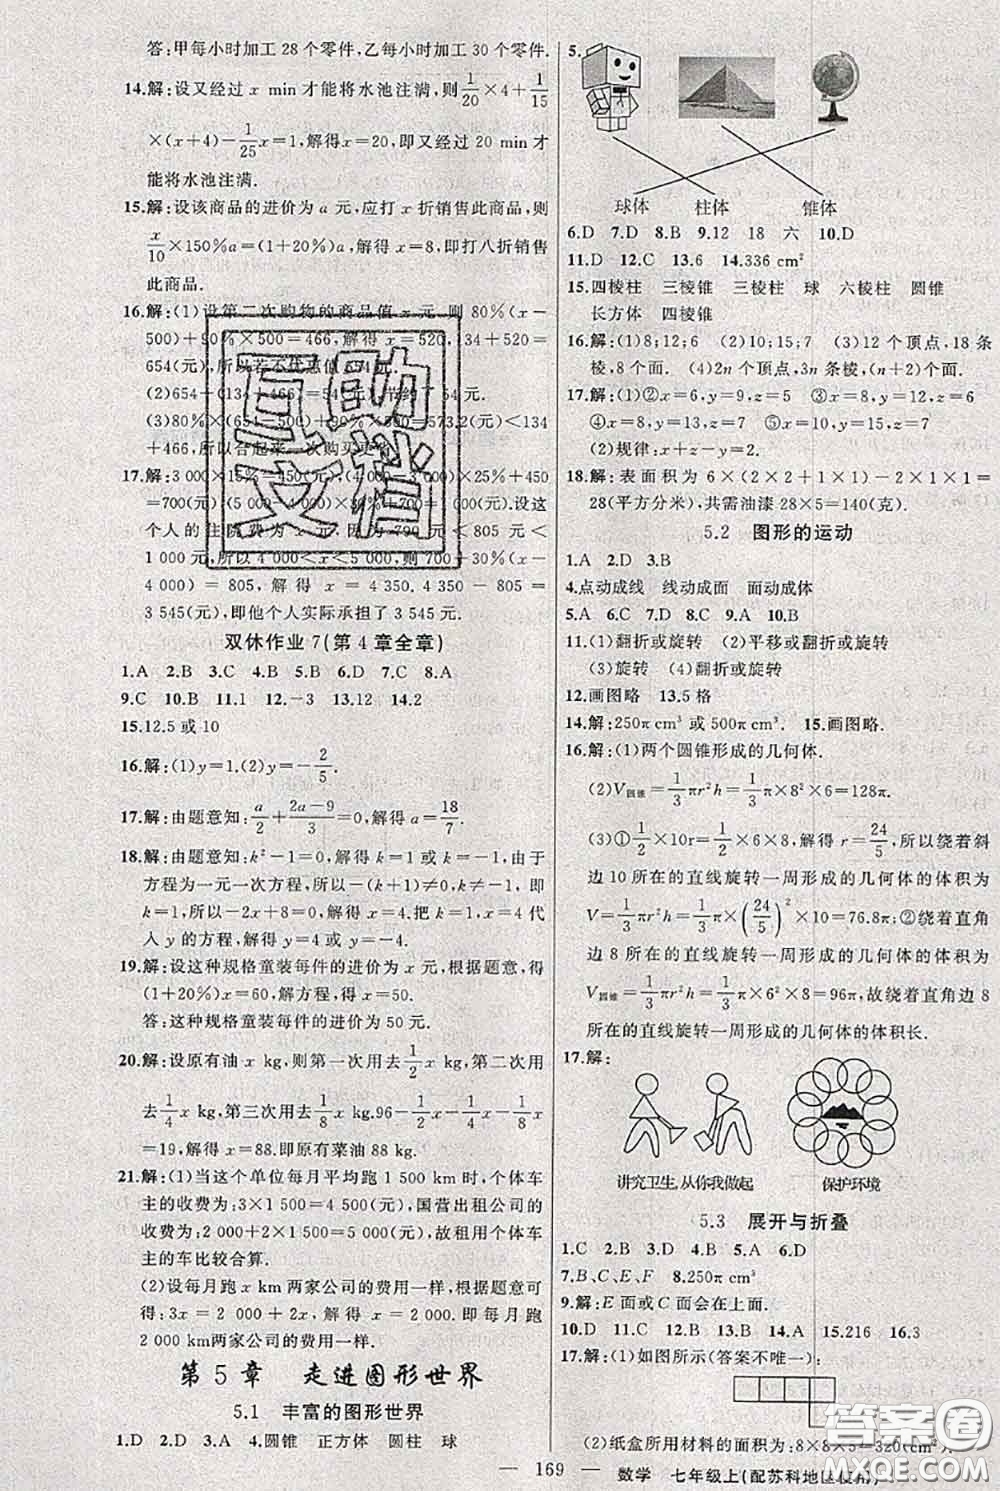 答:甲每小时加工28个零件,乙每小时加工30个零件.
14.解:设又经过x min才能将水池注满,则1/20×4+1/15
×(x+4)-1/25x=1,解得x=20,即又经过20 min才
能将水池注满.
15.解:设该商品的进价为a元,应打x折销售此商品,则
x/10×150%a=(1+20%)a,解得x=8,即打八折销售
此商品.
16.解:(1)设第二次购物的商品值x元,则80%(x-
500)+90%×500=466,解得x=520,134+520=
654(元),所以若不优惠值654(元)
(2)654-(134+466)=54(元)
(3)80%(654-500)+90%×500=573.2(元)<134
+466,所以合起来一次购买
17.解:3 000×15%+(4 000-3 000)×25%+450
=700(元)(5 000-4 000)
个人的住院费为x元,因为700<805<
元,所以4 000<x<5 000,则700+30%(x-
4 000)=805,解得x=4 350.4 350-805=
3 545(元),即他个人实际承担了3 545元.
双休作业7(第4章全章)
1.A 2.B 3.C 4.B 5.B 6.D 7.C 8.A
9.C 10.B 11.1 12.-3 13.12 14.2
15.12.5或10
16.解:(1)y=1.(2)y=-2/5.
17.解:由题意知:a/2+(2a-9)/3=0,解得a=18/7.
18.解:由题意知:k²-1=0,解得k=1或k=-1,由于
方程为一元一次方程,所以-(k+1)≠0,k≠-1.即
k=1,所以-2x+8=0,解得x=4.把k=1,x=4代
入y的方程,解得y=4或y=-4.
19.解:设这种规格童装每件的进价为x元,根据题意,得
(1+20%)x=60,解方程,得x=50.
答:这种规格童装每件的进价为50元.
20.解:设原有油x kg,则第一次用去1/2x kg,第二次用
去1/4x kg,第三次用去1/8x kg.96-1/2x-1/4x-1/8x
=19,解得x=88.即原有菜油88 kg.
21.解:(1)当这个单位每月平均跑1 500 km时,个体车
主的收费为:3×1 500=4 500(元),国营出租公司的
收费为:2 000+2×1 500=5 000(元),故租用个体车
主的车比较合算.
(2)设每月跑x km两家公司的费用一样,根据题意可
得:3x=2 000+2x,解得x=2 000.即每月跑
2 000 km两家公司的费用一样.
第5章 走进图形世界
5.1 丰富的图形世界
1.D 2.D 3.A 4.圆锥 正方体 圆柱 球
5.
球体 柱体 锥体
6.D 7.D 8.B 9.12 18 六 10.D
11.D 12.C 13.6 14.336 cm²
15.四棱柱 三棱锥 三棱柱 球 六棱柱 圆锥
长方体 四棱锥
16.解:(1)8;12;6 (2)10;15;7 (3)12个顶点,18条
棱,8个面. (4)2n个顶点,3n条棱,(n+2)个面.
17.解:(1)②x=6,y=9,z=5 ③x=8,y=12,z=6
④x=6,y=7,z=3 ⑤x=10,y=15,z=7
(2)规律:x+z-y=2.
18.解:表面积为6×(2×2+1×1)-2×1×1=
28(平方分米),共需油漆28×5=140(克).
5.2 图形的运动
1.A 2.D 3.B
4.点动成线 线动成面 面动成体
5.A 6.C 7.D 8.C 9.A 10.B
11.(1)翻折或旋转 (2)平移或翻折或旋转
(3)旋转 (4)翻折或旋转
12.画图略 13.5格
14.解:250π cm³或500π cm³. 15.画图略.
16.解:(1)两个圆锥形成的几何体.
(2)V圆锥=1/3πr²h=1/3π×8²×6=128π.
(3)①1/2×10r=1/2×6×8,解得r=24/5,所以绕着斜
边10所在的直线旋转一周形成的几何体的体积为
V=1/3πr²h=1/3π×(24/5)²×10=76.8π;②绕着直角
边8所在的直线旋转一周形成的几何体的体积为
V圆锥=1/3πr²h=1/3π×6²×8=96π,故绕着直角边8
所在的直线旋转一周形成的几何体的体积长.
17.解:
讲究卫生,从你我做起 保护环境
5.3 展开与折叠
1.C 2.B 3.B 4.A 5.A 6.D
7.B、C、E、F 8.250π cm³
9.解:E面或C面会在上面.
10.D 11.C 12.B 13.B 14.A 15.216 16.3
17.解:(1)如图所示(答案不唯一):
(2)纸盒所用材料的面积为:8×8×5=320(cm²)
— 169 — 数学 七年级上(配苏科地区使用)
互助文档
答案圈
MXQE.COM